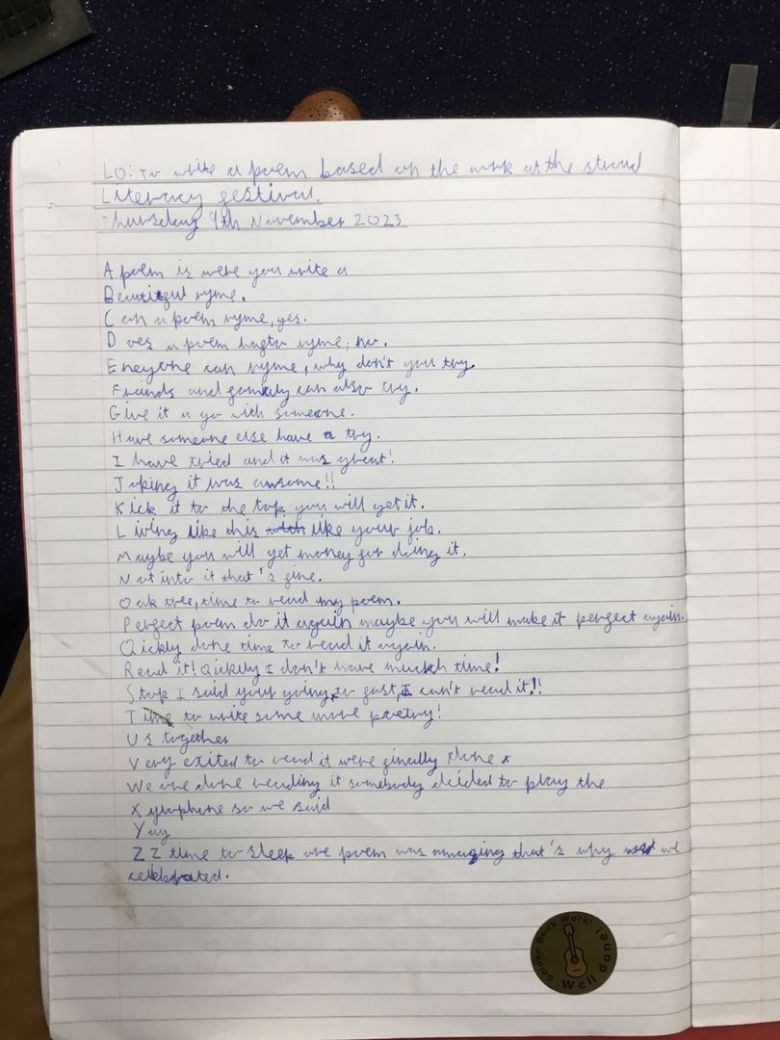 LO: To write a poem based on the work at the stroud
Literacy festival.
Thursday 9th November 2023
A poem is were you write a
Beautiful ryme.
Can a poem ryme, yes.
Does a poem hafto ryme, no.
Eneyone can ryme, why don't you try.
Friends and family can also try.
Give it a go with someone.
Have someone else have a try.
I have tried and it was great!
Joking it was awsome!!
Kick it to the top you will get it.
Living like this like your job.
Maybe you will get money for doing it.
Not into it that's fine.
Oak tree, time to read my poem.
Perfect poem do it again maybe you will make it perfect again.
Quickly done time to read it again.
Read it! Quickly I don't have much time!
Stop I said your going to fast, I can't read it!!
Time to write some more poetry!
Us together
Very exited to read it were finally done
We are done reading it somebody decided to play the
Xylophone so we said
Yay
ZZ time to sleep are poem was amazing that's why we
celebrated.
Golden Book Work!
Well done!